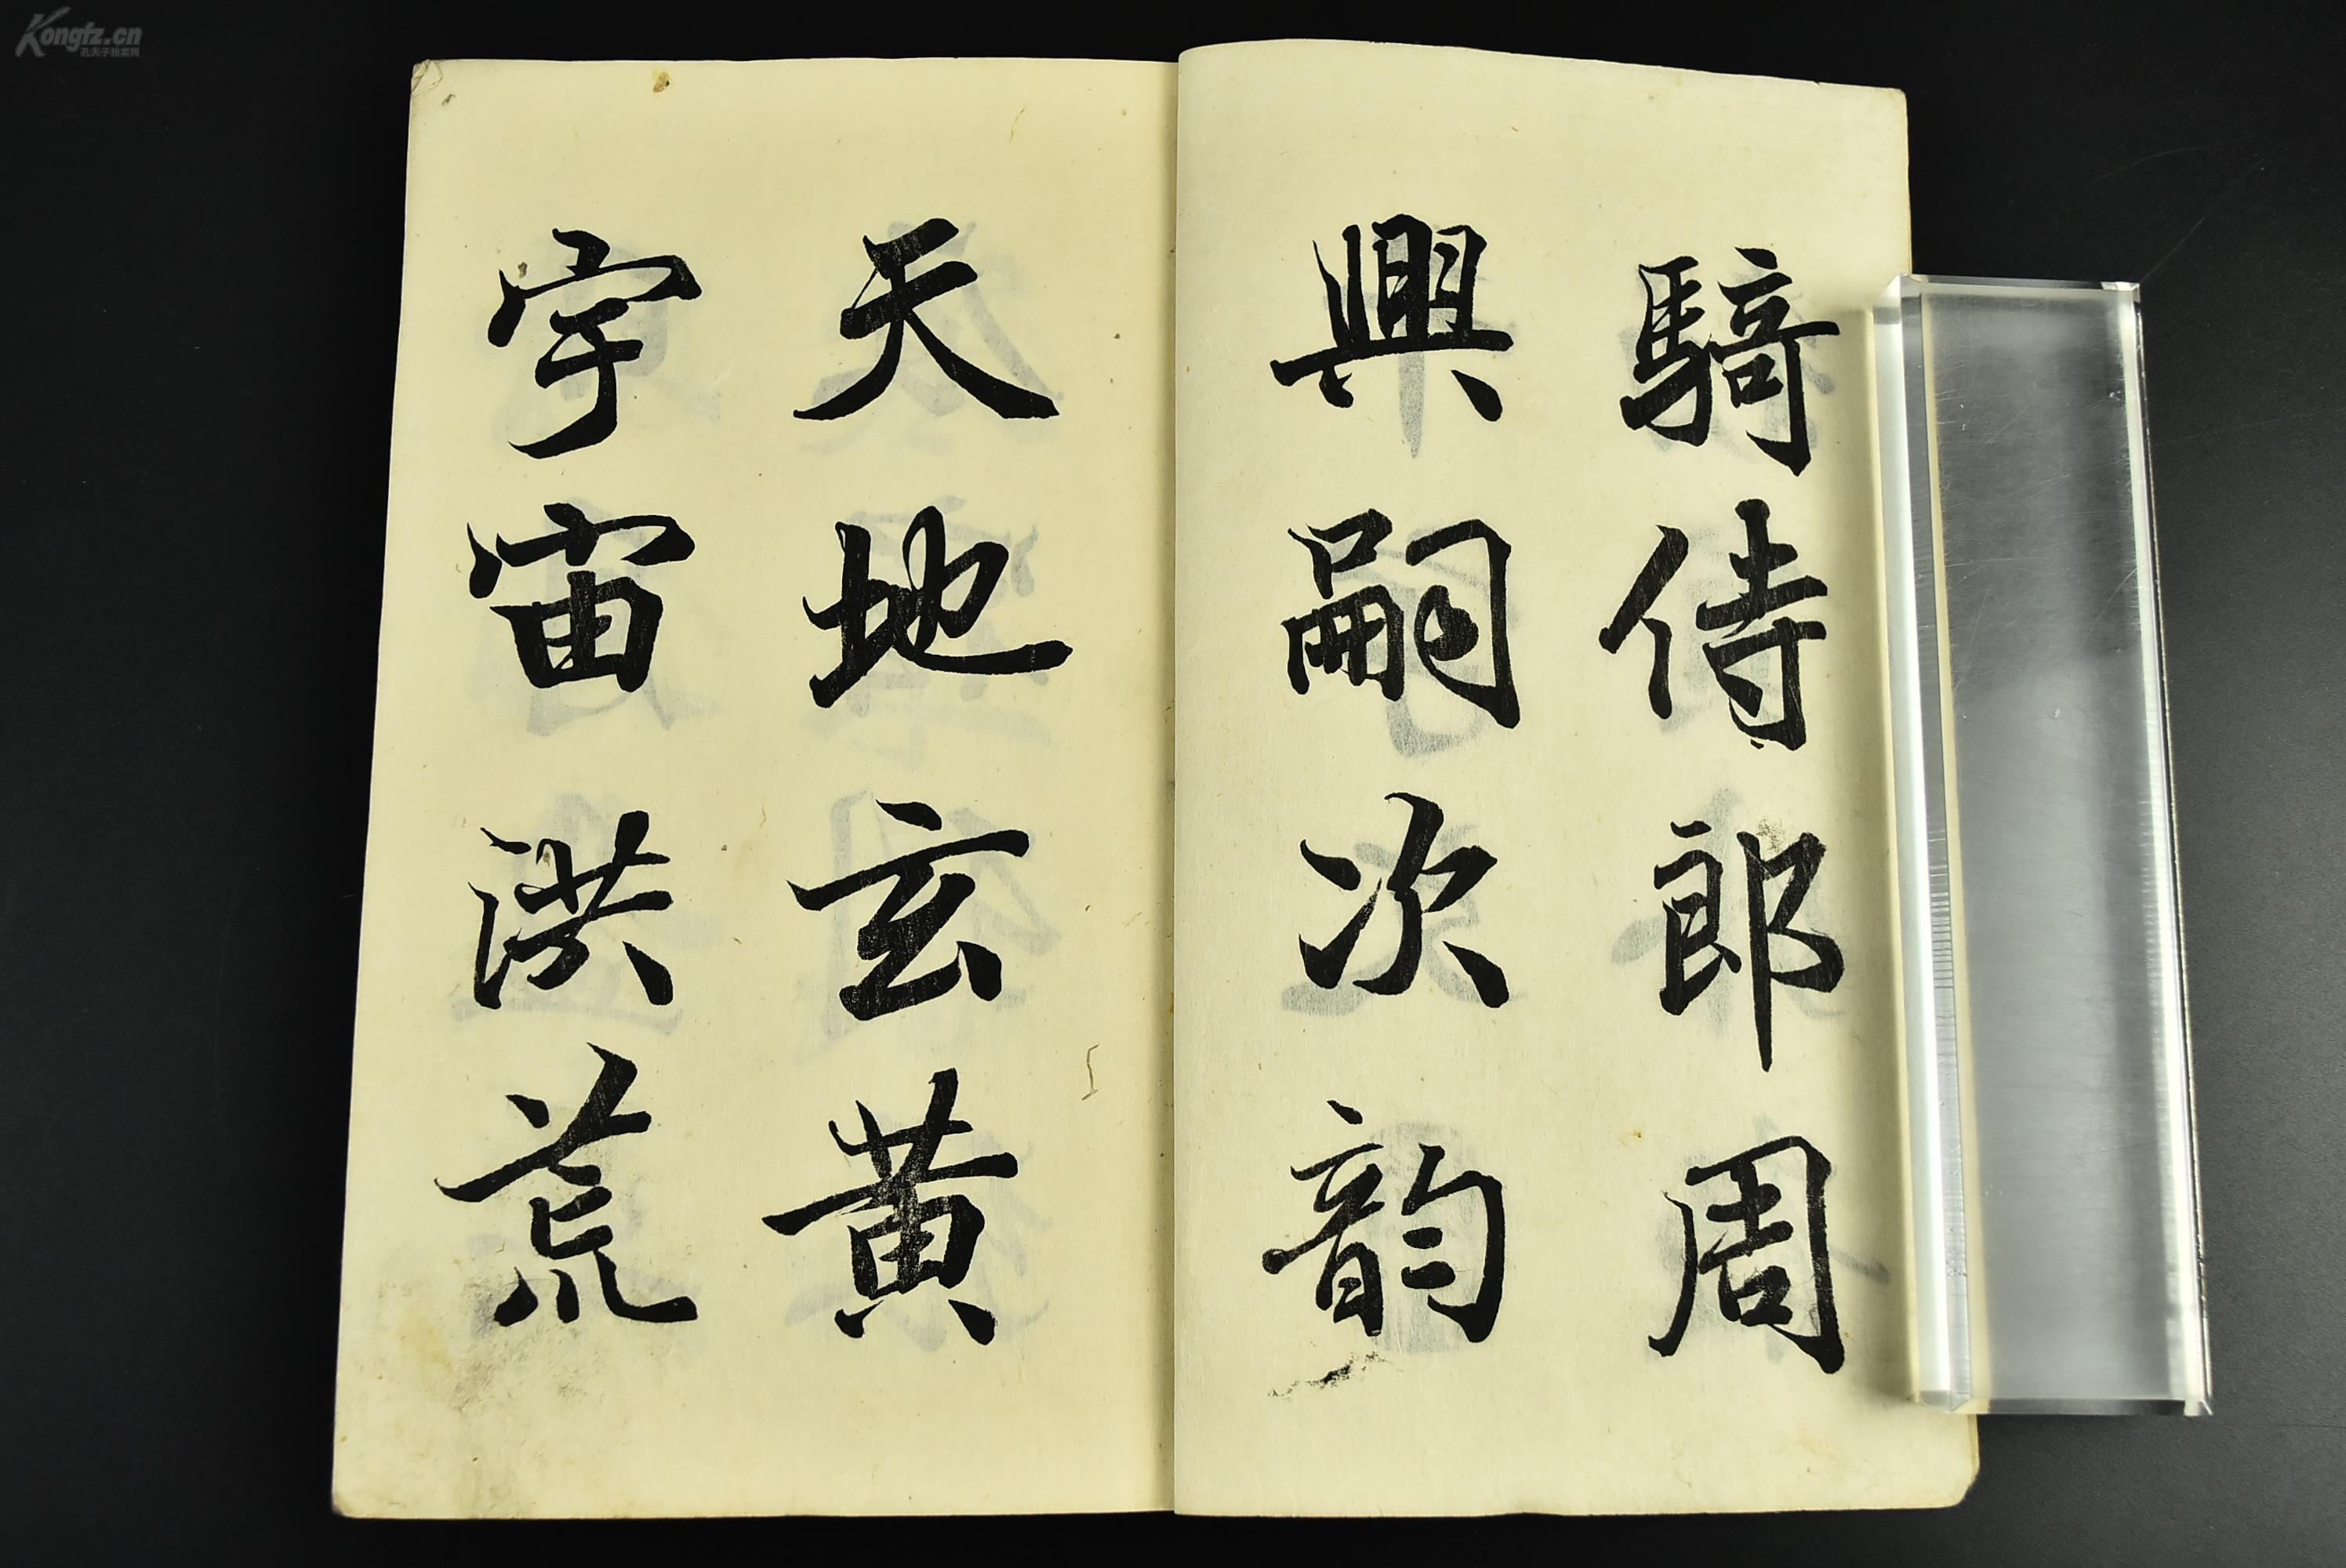 騎侍郎周
興嗣次韵
天地玄黄
宇宙洪荒
Kongfz.cn
孔夫子拍卖网